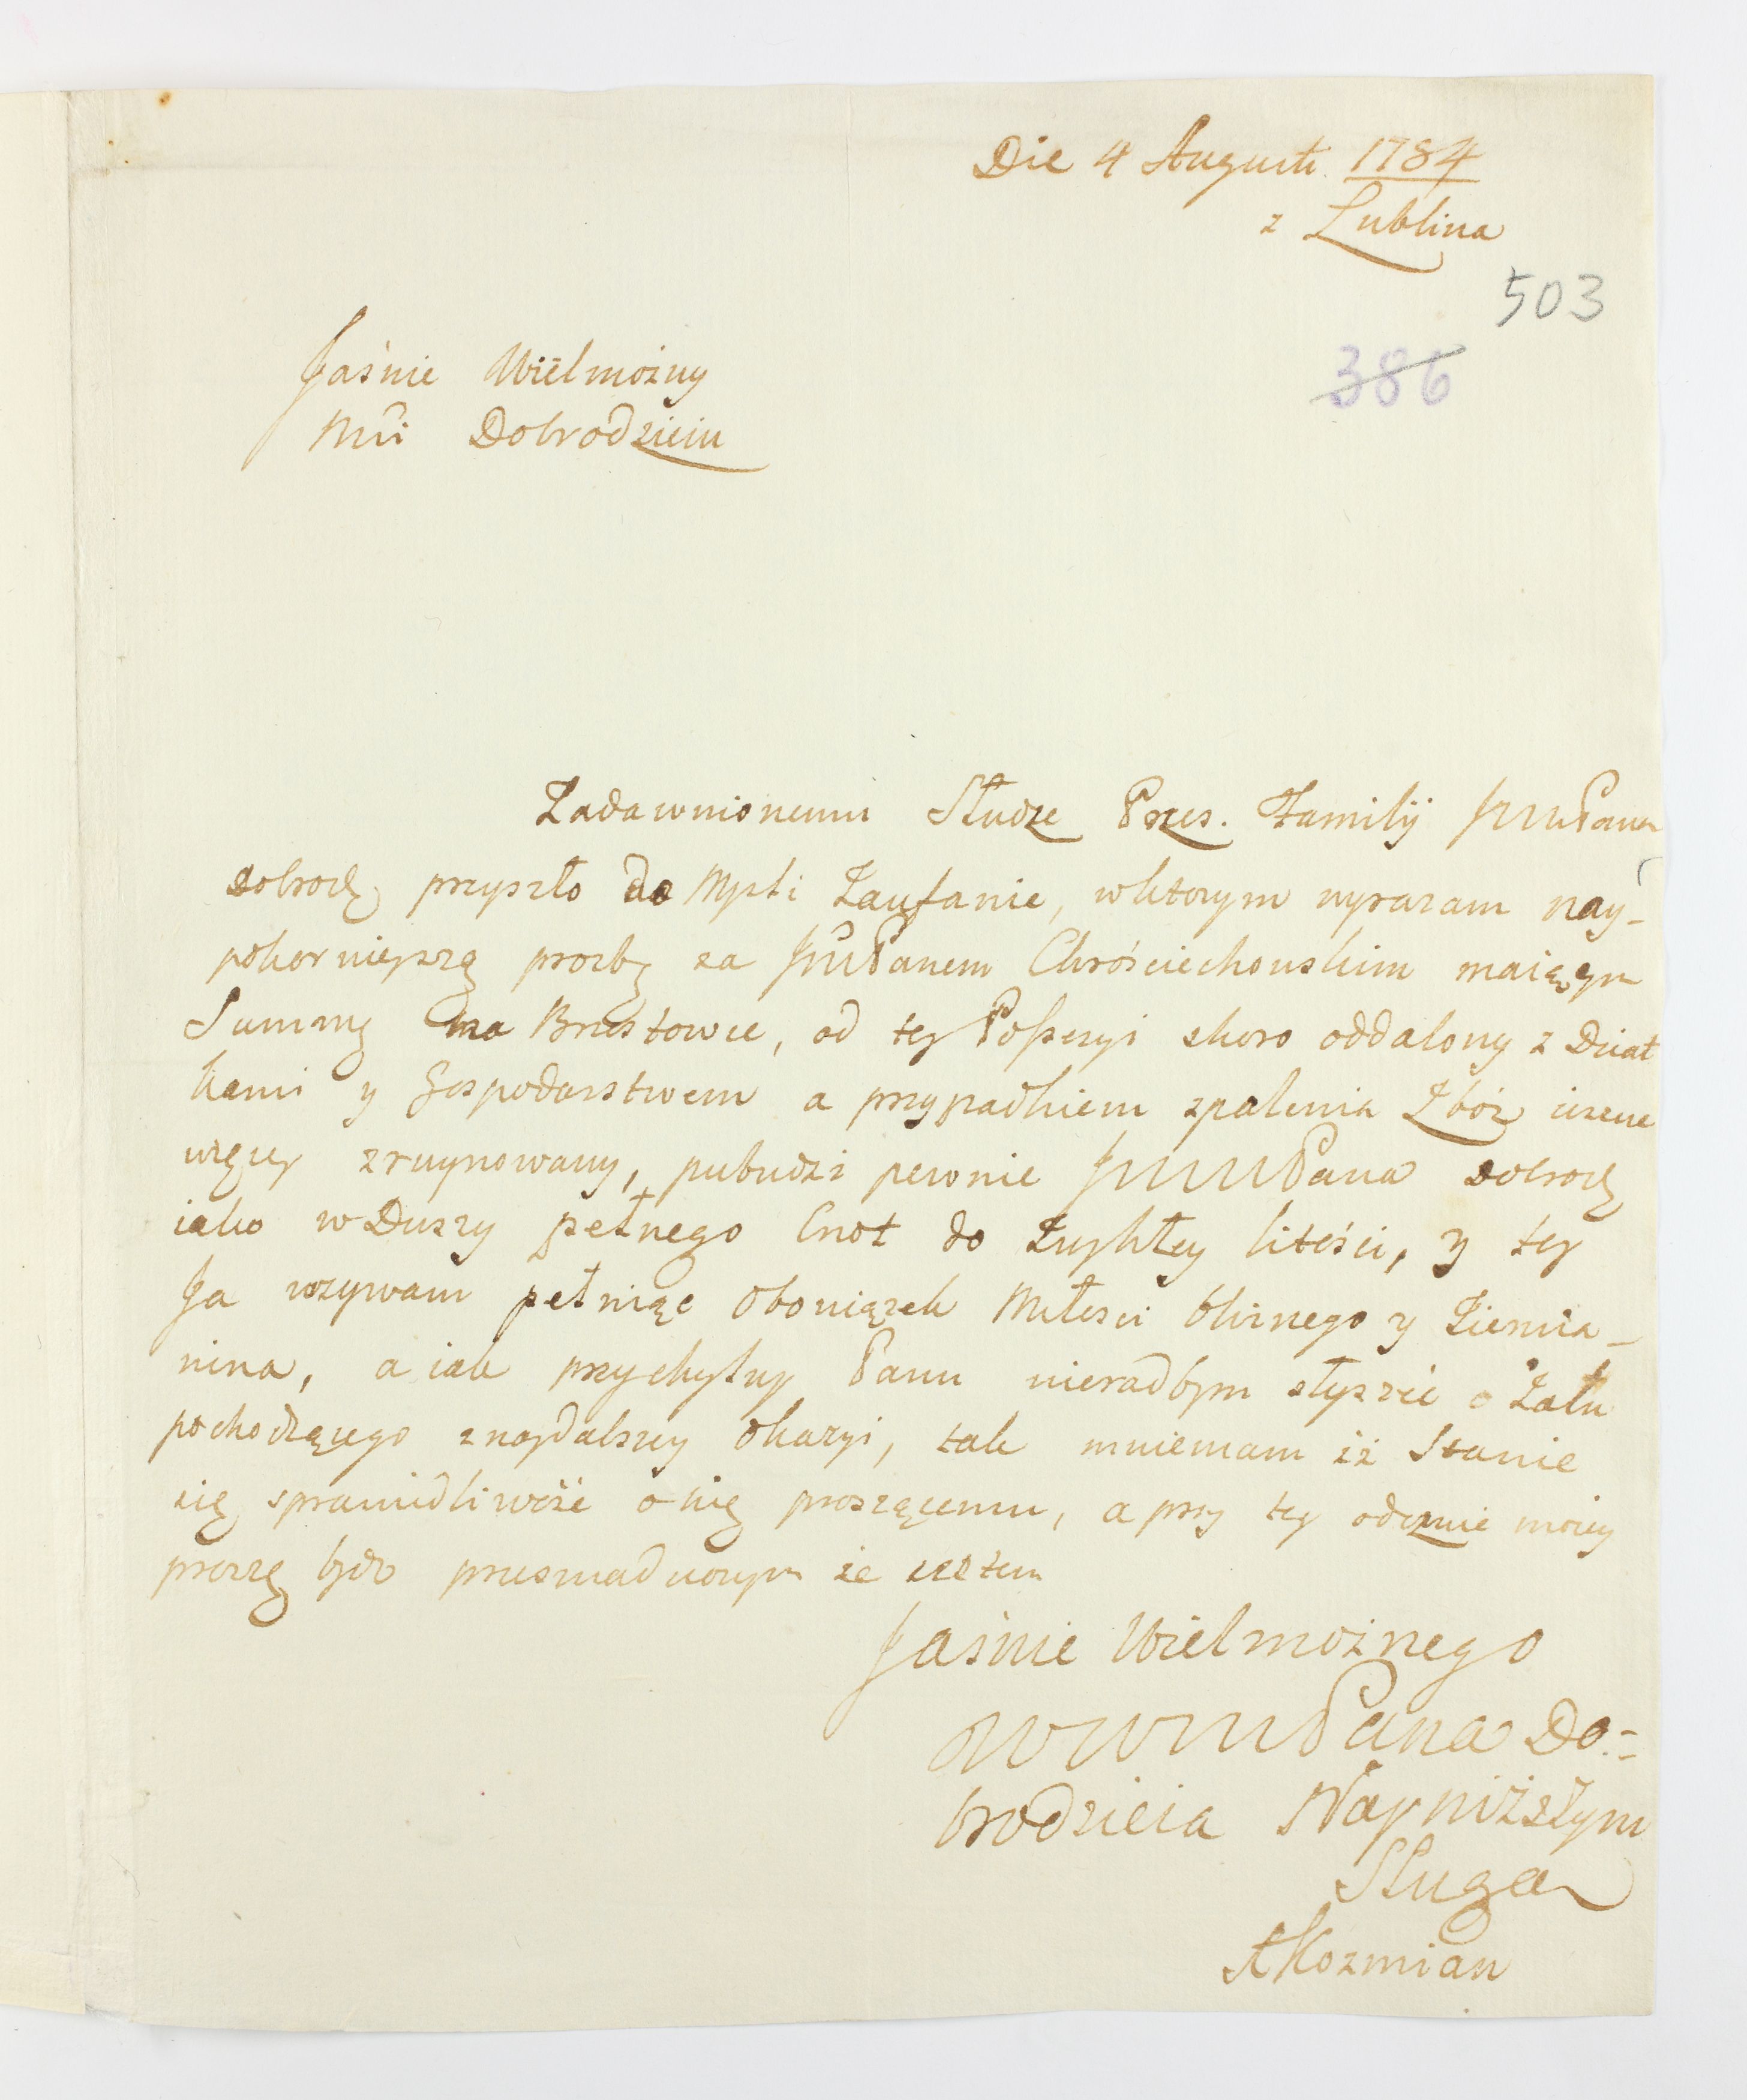 Die 4 Augusti 1784
z Lublina
503
386
Jaśnie Wielmożny
Mći Dobrodzieiu
Zadawnionemu Słudze Przes. Familij JWWPana
Dobrodz przyszło do Myśli Zaufanie, wktorym wyrazam nay-
pokornieyszą prozbę za JmPanem Chróściechowskim maiącym
Summę na Brustowce, od tey Possesyi skoro oddalony z Dziat
kami y Gospodarstwem a przypadkiem spalenia Zbóż ieszcze
więcey zruynowany, pubudzi pewnie JWWMPana Dobrodz
iako w Duszy pełnego Cnot do Zwykłey litości, y tey
Ja wzywam pełniąc Obowiązek Miłości bliznego y Ziemia-
nina, a iak przychylny Panu nieradbym słyszeć o Żalu
pochodzącego znaydalszey Okazyi, tak mniemam iż Stanie
się sprawidliwość o nię proszącemu, a przy tey odezwie moiey
proszę bydz przeswiadczonym że iestem
Jaśnie Wielmożnego
WWMPana Do-
brodzieia Nayniższym
Sługa
AKozmian